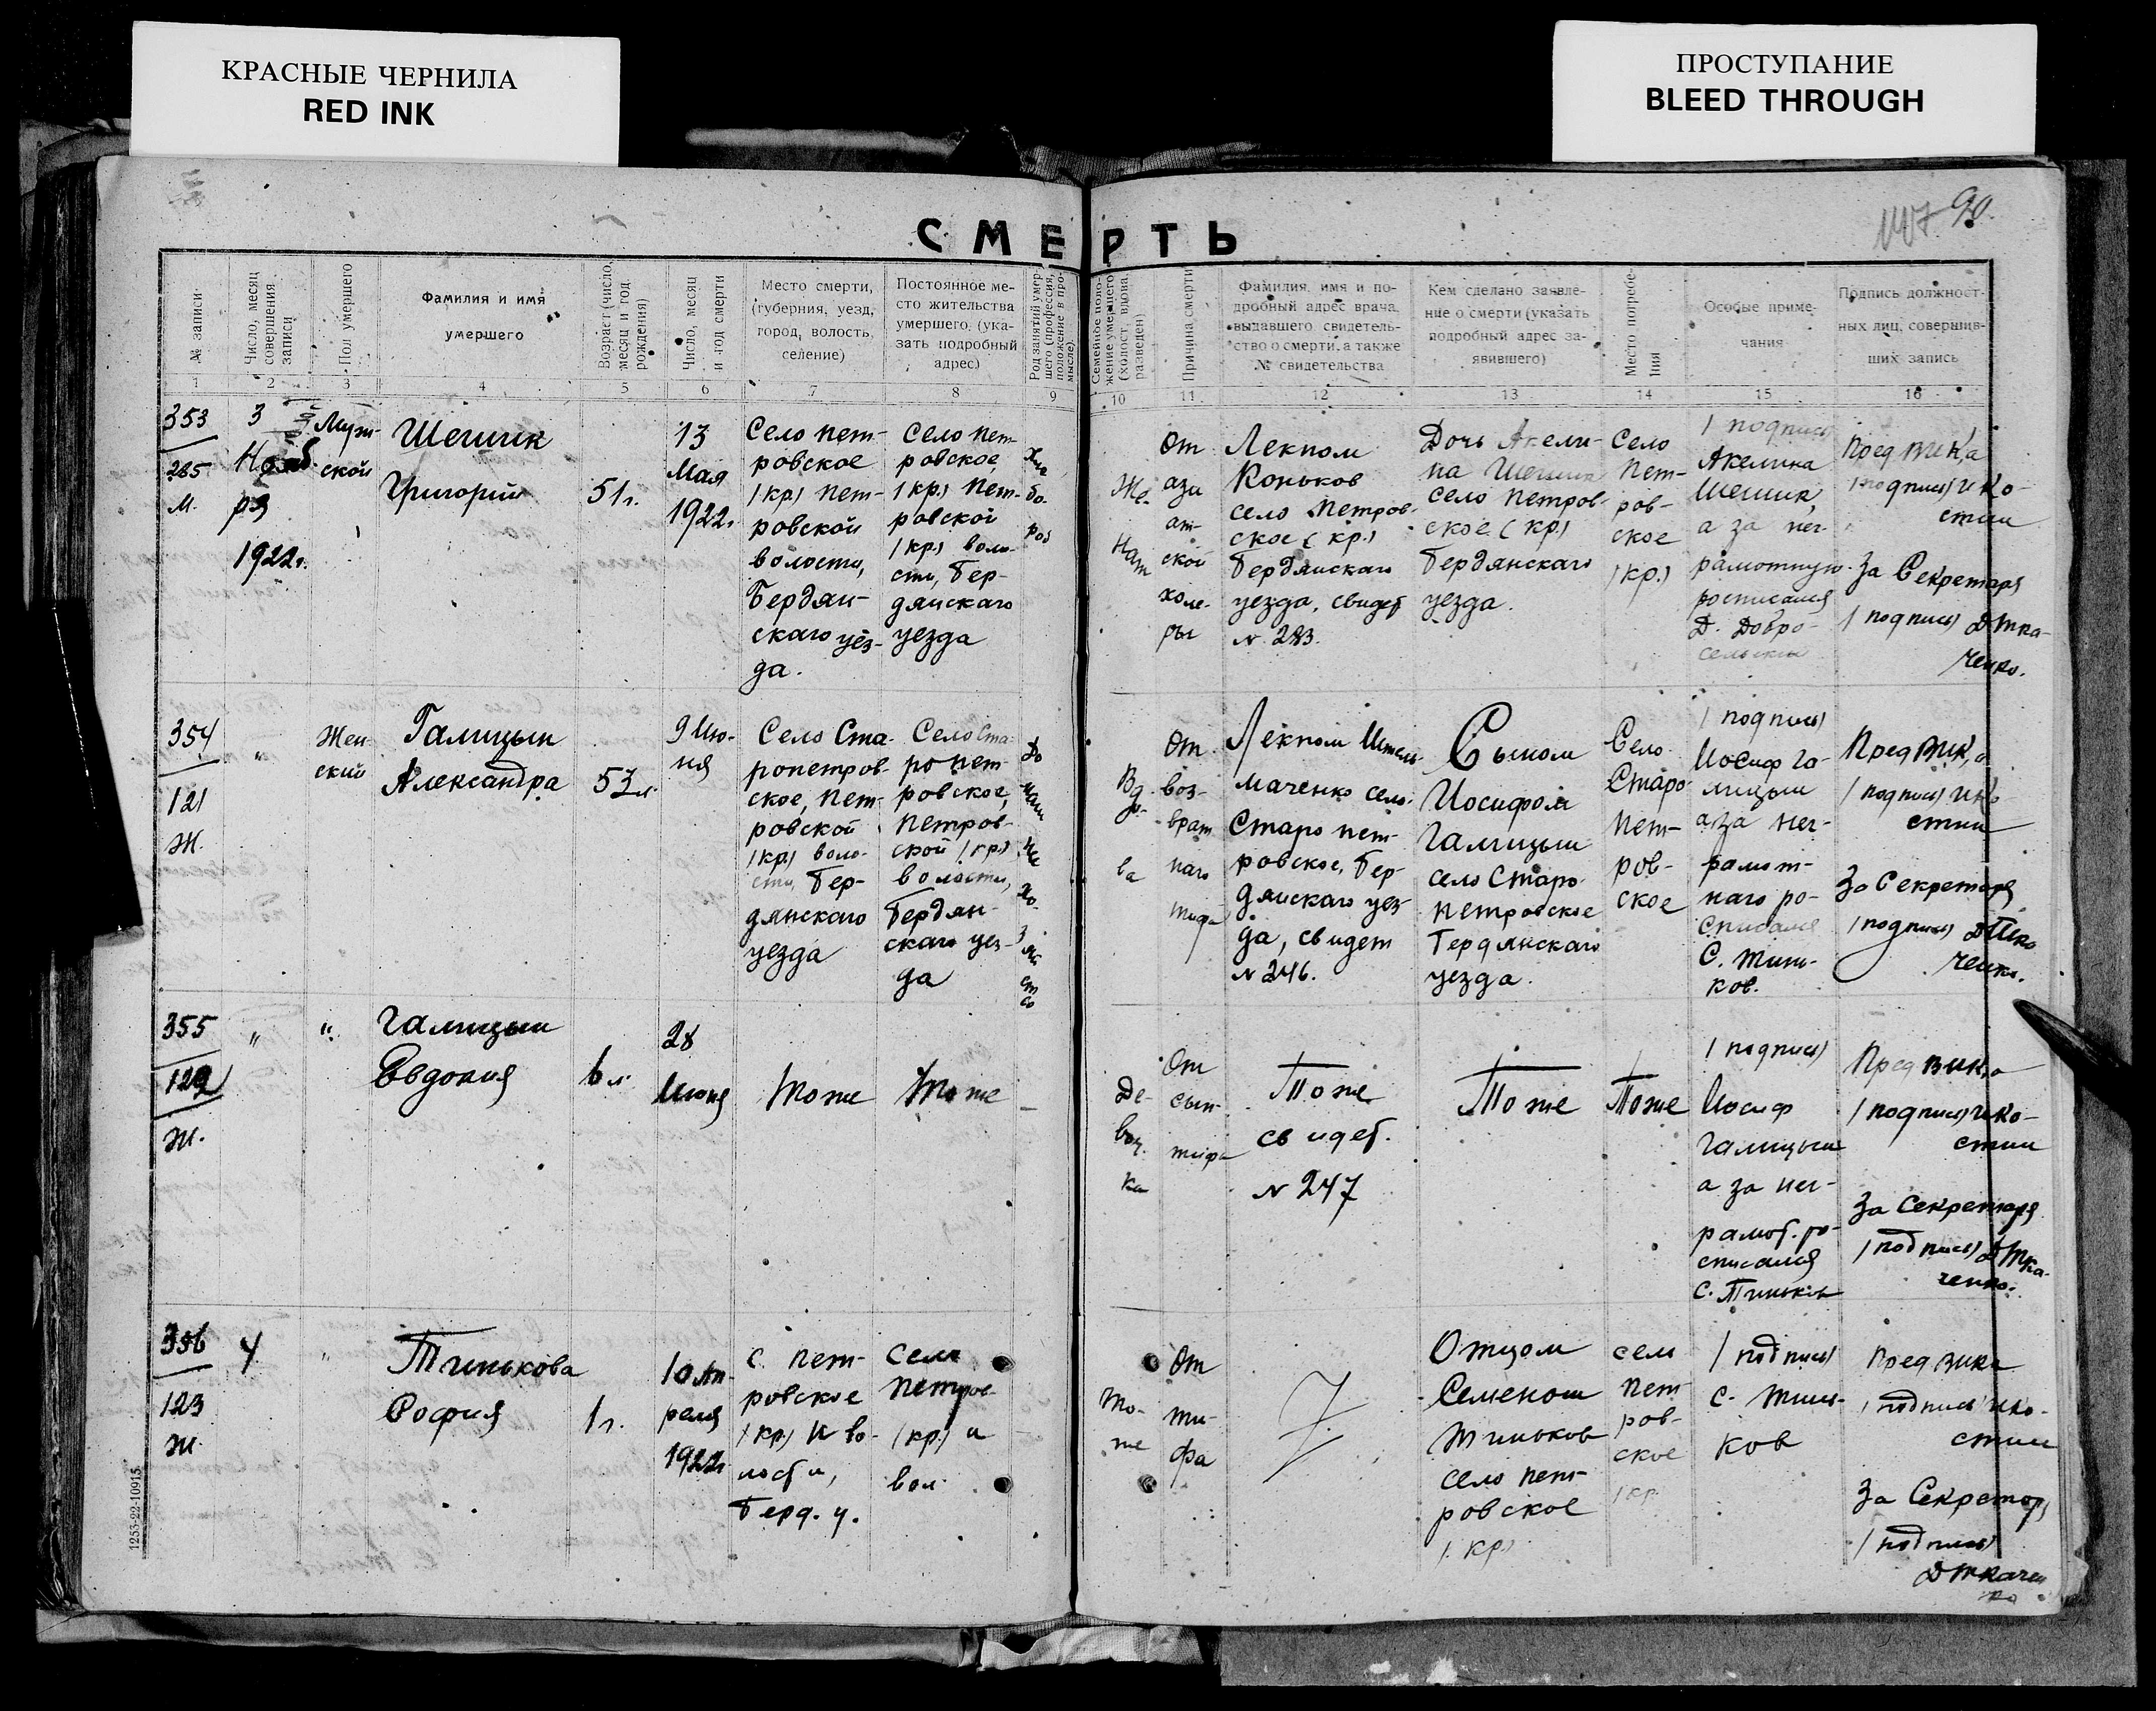 КРАСНЫЕ ЧЕРНИЛА
RED INK
ПРОСТУПАНИЕ
BLEED THROUGH
90.
СМЕРТЬ
№ записи
Число, месяц
совершения
записи
Пол умершего
Фамилия и имя
умершего
Возраст (число,
месяц и год
рождения)
Число, месяц
и год смерти
Место смерти,
(губерния, уезд,
город, волость,
селение)
Постоянное ме-
сто жительства
умершего, (ука-
зать подробный
адрес)
Род занятий умер-
шего (профессия,
положение в про-
мысле).
Семейное поло-
жение умершего
(холост, вдова,
разведен)
Причина смерти
Фамилия, имя и по-
дробный адрес врача,
выдавшего свидетель-
ство о смерти, а также
№ свидетельства
Кем сделано заявле-
ние о смерти (указать
подробный адрес за-
явившего)
Место погребе-
ния
Особые приме-
чания
Подпись должност-
ных лиц, совершив-
ших запись
1 2 3 4 5 6 7 8 9 10 11 12 13 14 15 16
353
285
м.
3
Нояб
ря
1922г.
Муж-
ской
Шешик
Григорий
51г.
13
Мая
1922г.
Село Пет-
ровское
(кр) Пет-
ровской
волости,
Бердян-
скаго уез-
да.
Село Пет-
ровское,
(кр) Пет-
ровской
(кр) воло-
сти, Бер-
дянскаго
уезда
Хле
бо
роб
Же-
нат
От
ази
ат-
ской
холе-
ры
Лекпом
Коньков
село Петров-
ское (кр)
Бердянскаго
уезда, свидет
№ 283.
Дочь Акели-
на Шешик
село Петров-
ское (кр)
Бердянскаго
уезда.
Село
Пет-
ров-
ское
(кр)
(подпись)
Акелина
Шешик,
а за нег-
рамотную
росписался
Д. Добро-
сельский
Пред ВИК,а
(подпись) Ико-
стин
За Секретаря
(подпись) ДТка-
ченко.
354
121
Ж.
"
Жен-
ский
Галицын
Александра
53 л.
9 Ию-
ня
Село Ста-
ропетров-
ское, Пет-
ровской
(кр) воло-
сти, Бер-
дянскаго
уезда
Село Ста-
ропет-
ровское,
Петров-
ской (кр)
волости,
Бердян-
скаго уез-
да
До
маш
не
хо-
зяй
ст
во
Вд
о-
ва
От
воз-
врат
наго
тифа
Лекпом
маченко село
Старопет-
ровское, Бер-
дянскаго уез-
да, свидет
№ 246.
Сыном
Иосифом
Галицын
село Старо-
петровское
Бердянскаго
уезда.
Село
Старо-
пет-
ров-
ское
(подпись)
Иосиф Га-
лицын
а за нег-
рамот-
наго ро-
списался
С. Тинь-
ков.
Пред ВИК,а
(подпись) Ико-
стин
За Секретаря
(подпись) ДТка
ченко.
355
122
Ж.
"
"
Галицын
Евдокия
6 л.
28
Июня
Тоже
Тоже
—
Де-
воч-
ка
От
сып-
тифа
Тоже
свидет.
№ 247
Тоже
Тоже
(подпись)
Иосиф
Галицын
а за нег-
рамот. ро-
списался
С. Тиньков
Пред ВИК,а
(подпись) Ико-
стин
За Секретаря
(подпись) ДТка-
ченко.
356
123
Ж.
4
"
Тинькова
София
1 г.
10 Ап-
реля
1922г
с. Пет-
ровское
(кр) И во-
лости,
Берд. у.
село
Петров-
(кр) и
вол.
То-
же
От
ти-
фа
Отцом
Семеном
Тиньков
село Пет-
ровское
(кр)
село
Пет-
ров-
ское
(кр
(подпись)
С. Тинь-
ков
Пред вика
(подпись) Ико-
стин
За Секретаря
(подпись)
ДТкачен
ко
1253-22-10915